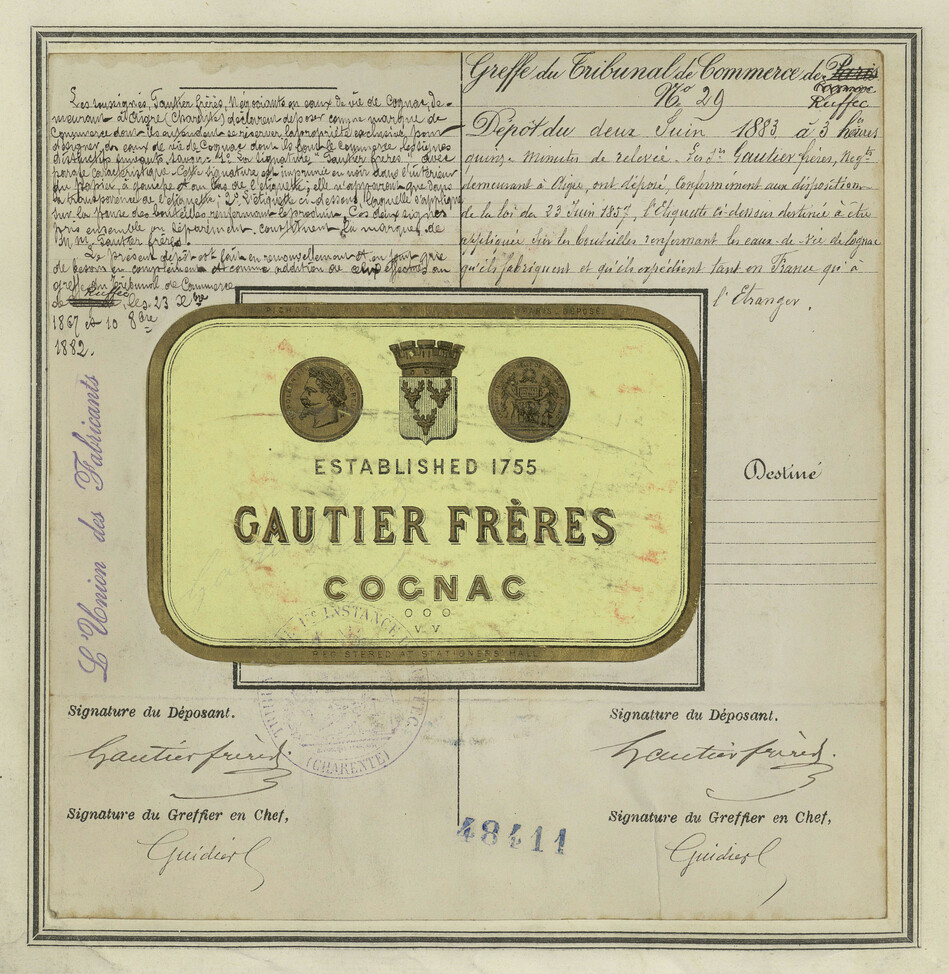 Les soussignés, Gautier frères, Négociants en eaux de vie de Cognac, de-
meurant à Aigre (Charente) déclarent déposer comme marque de
commerce dont ils entendent se réserver la propriété exclusive, pour
désigner les eaux de vie de Cognac dont ils font le commerce, les signes
distinctifs suivants, savoir: 1° La signature "Gautier frères" avec
parafe caractéristique. Cette signature est imprimée en noir dans l'intérieur
du papier, à gauche et au bas de l'étiquette; elle n'apparaît que dans
la transparence de l'étiquette; 2° L'étiquette ci-dessous, laquelle s'applique
sur la panse des bouteilles renfermant le produit. Ces deux signes
pris ensemble ou séparément constituent la marque de
M.M. Gautier frères.
Le présent dépôt est fait en renouvellement et en tout cas
de besoin en complément et comme addition de effectués au
greffe du Tribunal de Commerce
de Ruffec, les 23 Xbre
1867 et 10 8bre
1882.
Greffe du Tribunal de Commerce de Paris
Ruffec
No 29
Dépôt du deux Juin 1883 à 3 heures
quinze minutes de relevée. Les Srs Gautier frères, Négts
demeurant à Aigre, ont déposé, conformément aux dispositions
de la loi du 23 Juin 1857, l'Etiquette ci-dessous destinée à être
appliquée sur les bouteilles renfermant les eaux-de-vie de Cognac
qu'ils fabriquent et qu'ils expédient tant en France qu'à
l'Etranger.
L'Union des Fabricants
ESTABLISHED 1755
GAUTIER FRÈRES
COGNAC
REGISTERED AT STATIONERS HALL
Destiné
(CHARENTE)
Signature du Déposant.
Gautier frères
Signature du Greffier en Chef,
Signature du Déposant.
Gautier frères
Signature du Greffier en Chef,
48411